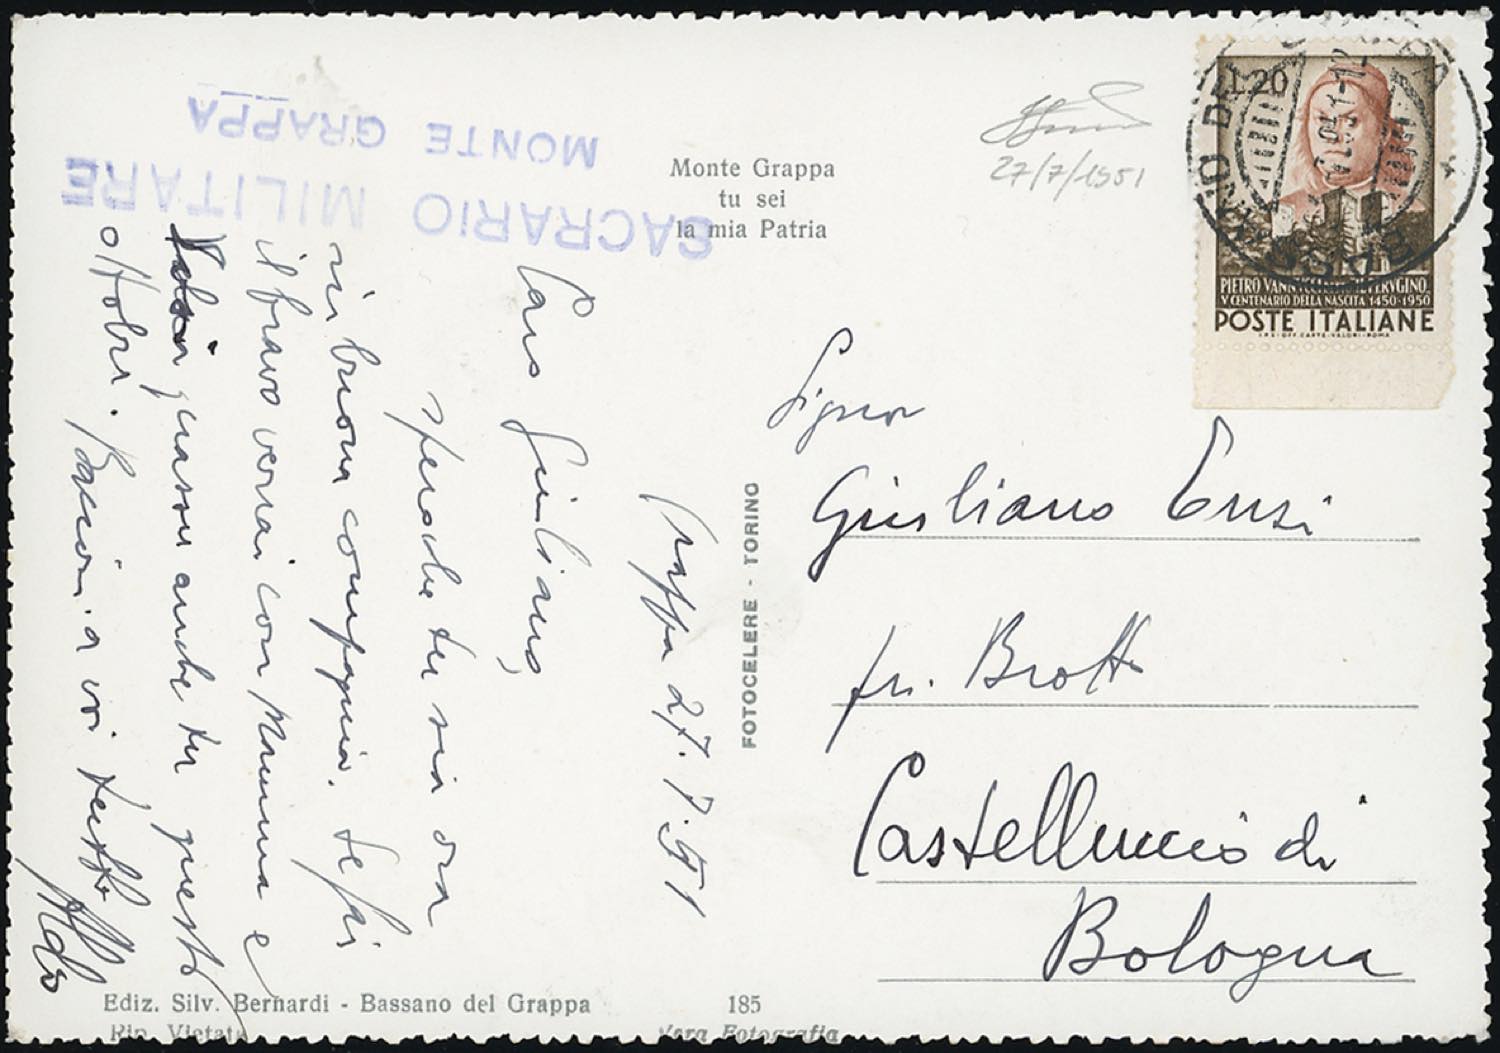 SACRARIO MILITARE
MONTE GRAPPA
Monte Grappa
tu sei
la mia Patria
27/7/1951
L.20
PIETRO VANNUCCI PERUGINO
V CENTENARIO DELLA NASCITA 1450-1950
POSTE ITALIANE
I.P.S.-OFF.CARTE-VALORI-ROMA
Grappa 27.7.951
Caro Giuliano,
spero che tu sia ora
in buona compagnia. Se fai
il bravo verrai con Mamma e
quassù anche tu questo
ottobre. Bacioni a voi tutti
Aldo
FOTOCELERE - TORINO
Signor
Giuliano
fr. Brotto
Castelluccio di
Bologna
Ediz. Silv. Bernardi - Bassano del Grappa
185
Rip. Vietata
Vera Fotografia